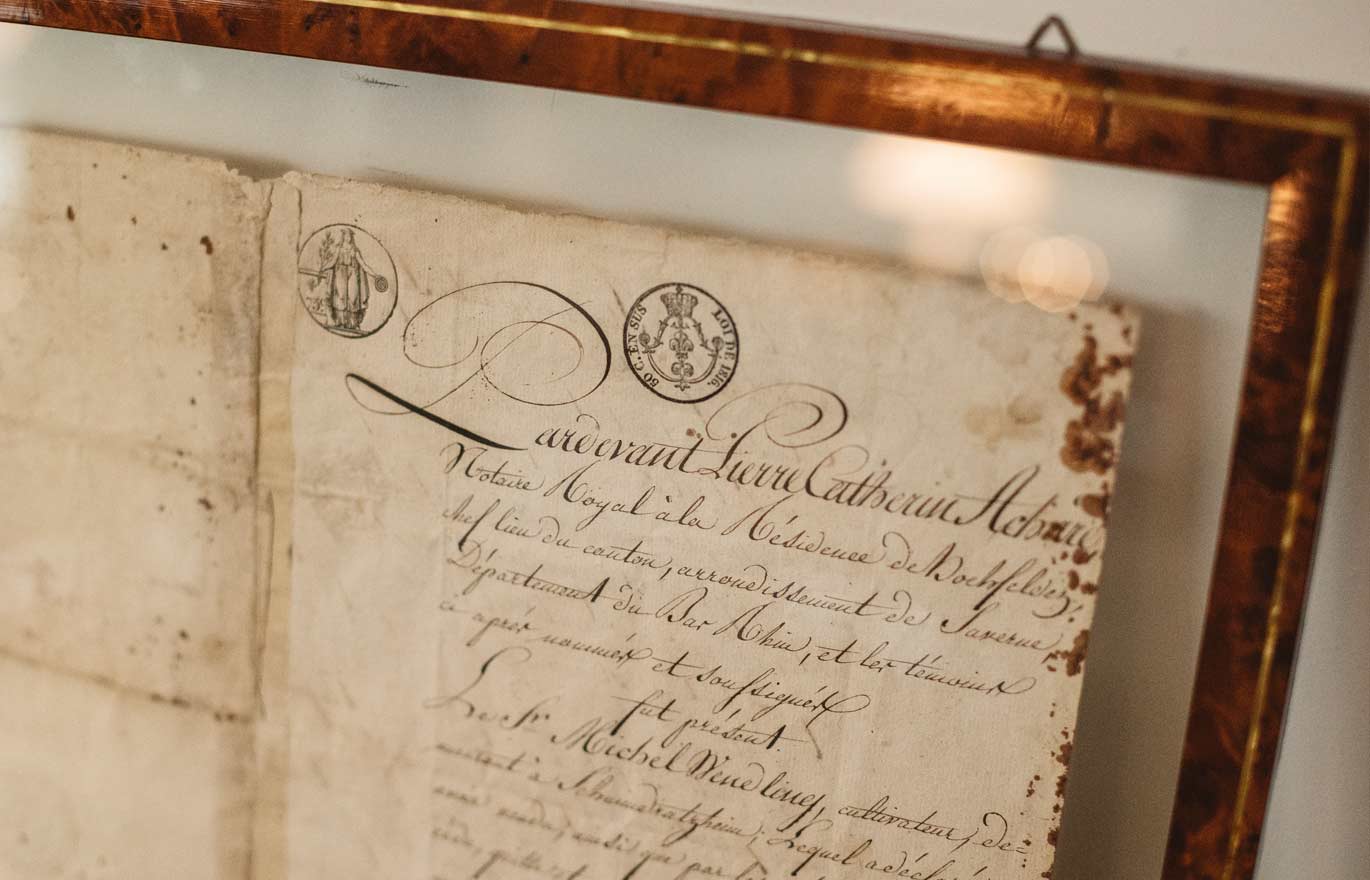 50 C. EN SUS
LOI DE 1816.
Pardevant Pierre Catherin Achard
Notaire Royal à la Résidence de Hochfelden,
chef lieu du canton, arrondissement de Saverne,
Département du Bas Rhin, et les témoins
ci après nommés et soussignés
fut présent
Le Sr. Michel Wendling, cultivateur, de=
meurant à Schwindratzheim; Lequel a déclaré
avoir vendu, ainsi que par les